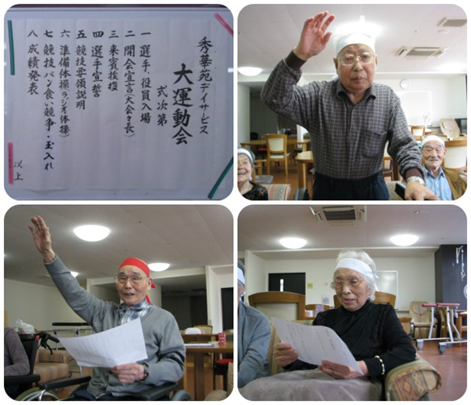 秀華苑デイサービス
大運動会
式次第
一 選手、役員入場
二 開会宣言(大会々長)
三 来賓挨拶
四 選手宣誓
五 競技要領説明
六 準備体操(ラジオ体操)
七 競技パン食い競争・玉入れ
八 成績発表
以上